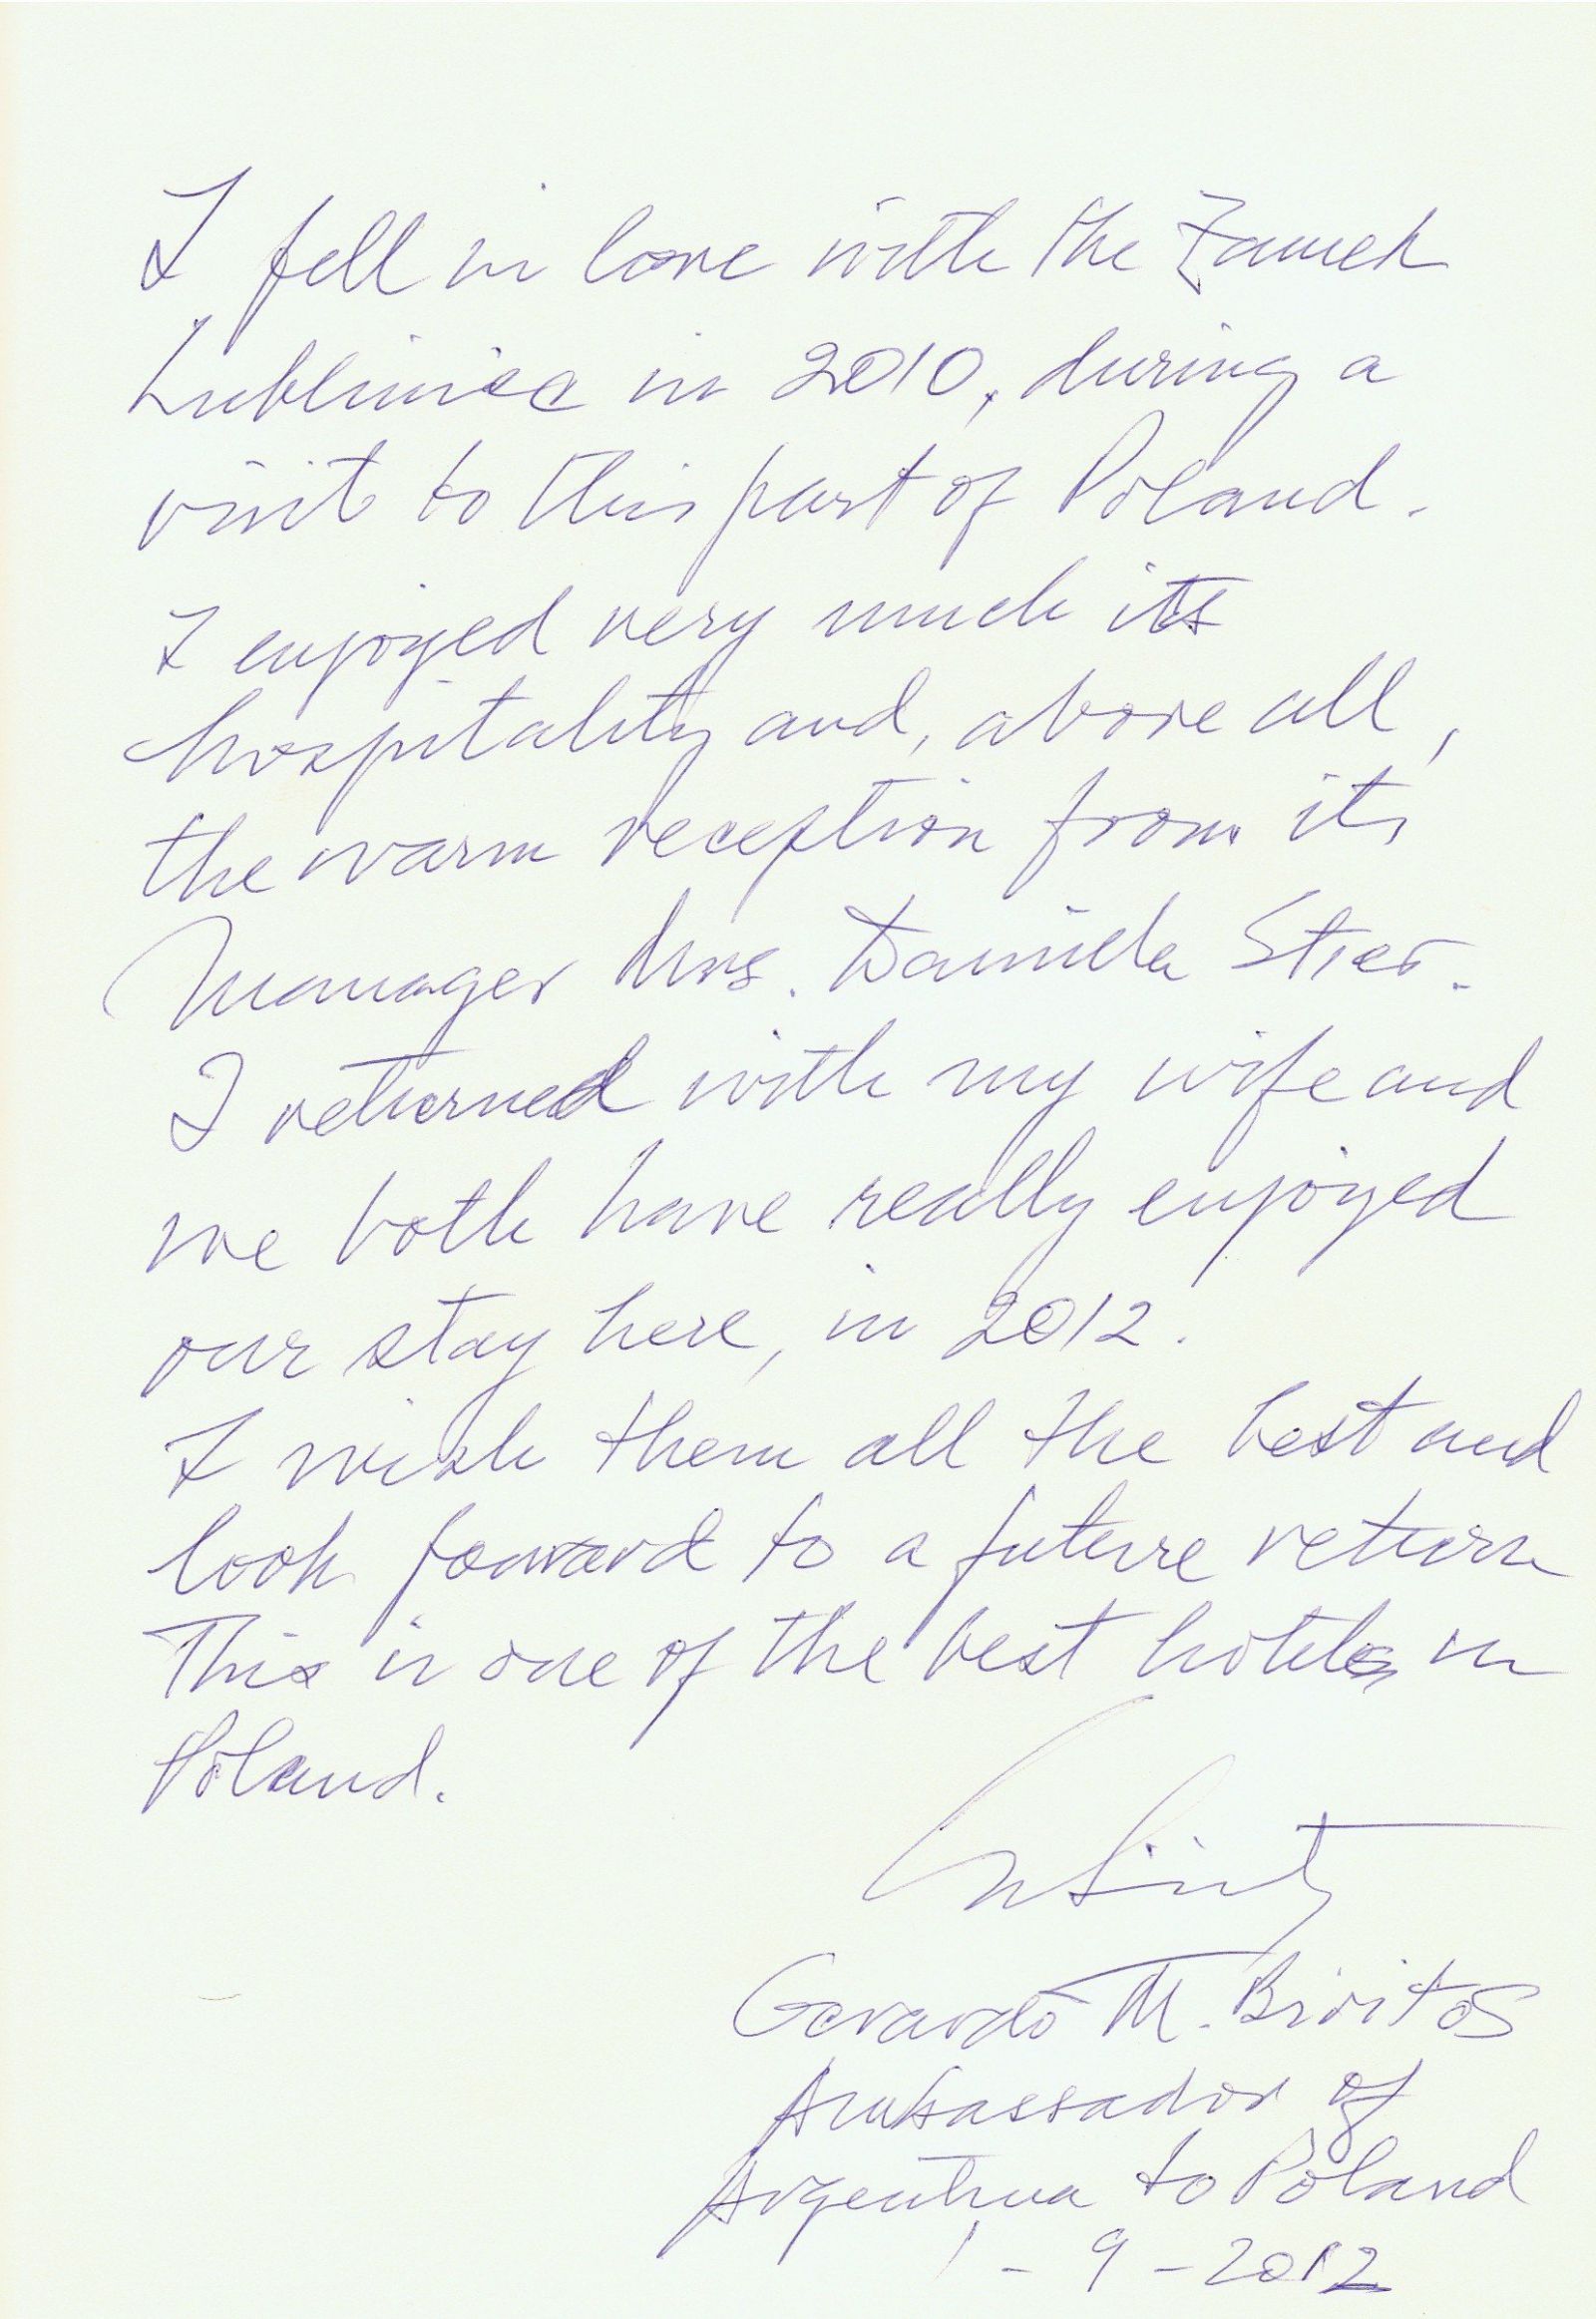 I fell in love with the Zamek
Lubliniec in 2010, during a
visit to this part of Poland.
I enjoyed very much its
hospitality and, above all,
the warm reception from its
Manager Mrs. Daniela Stier.
I returned with my wife and
we both have really enjoyed
our stay here, in 2012.
I wish them all the best and
look forward to a future return
This is one of the best hotels in
Poland.
Gerardo M. Biritos
Ambassador of
Argentina to Poland
1-9-2012